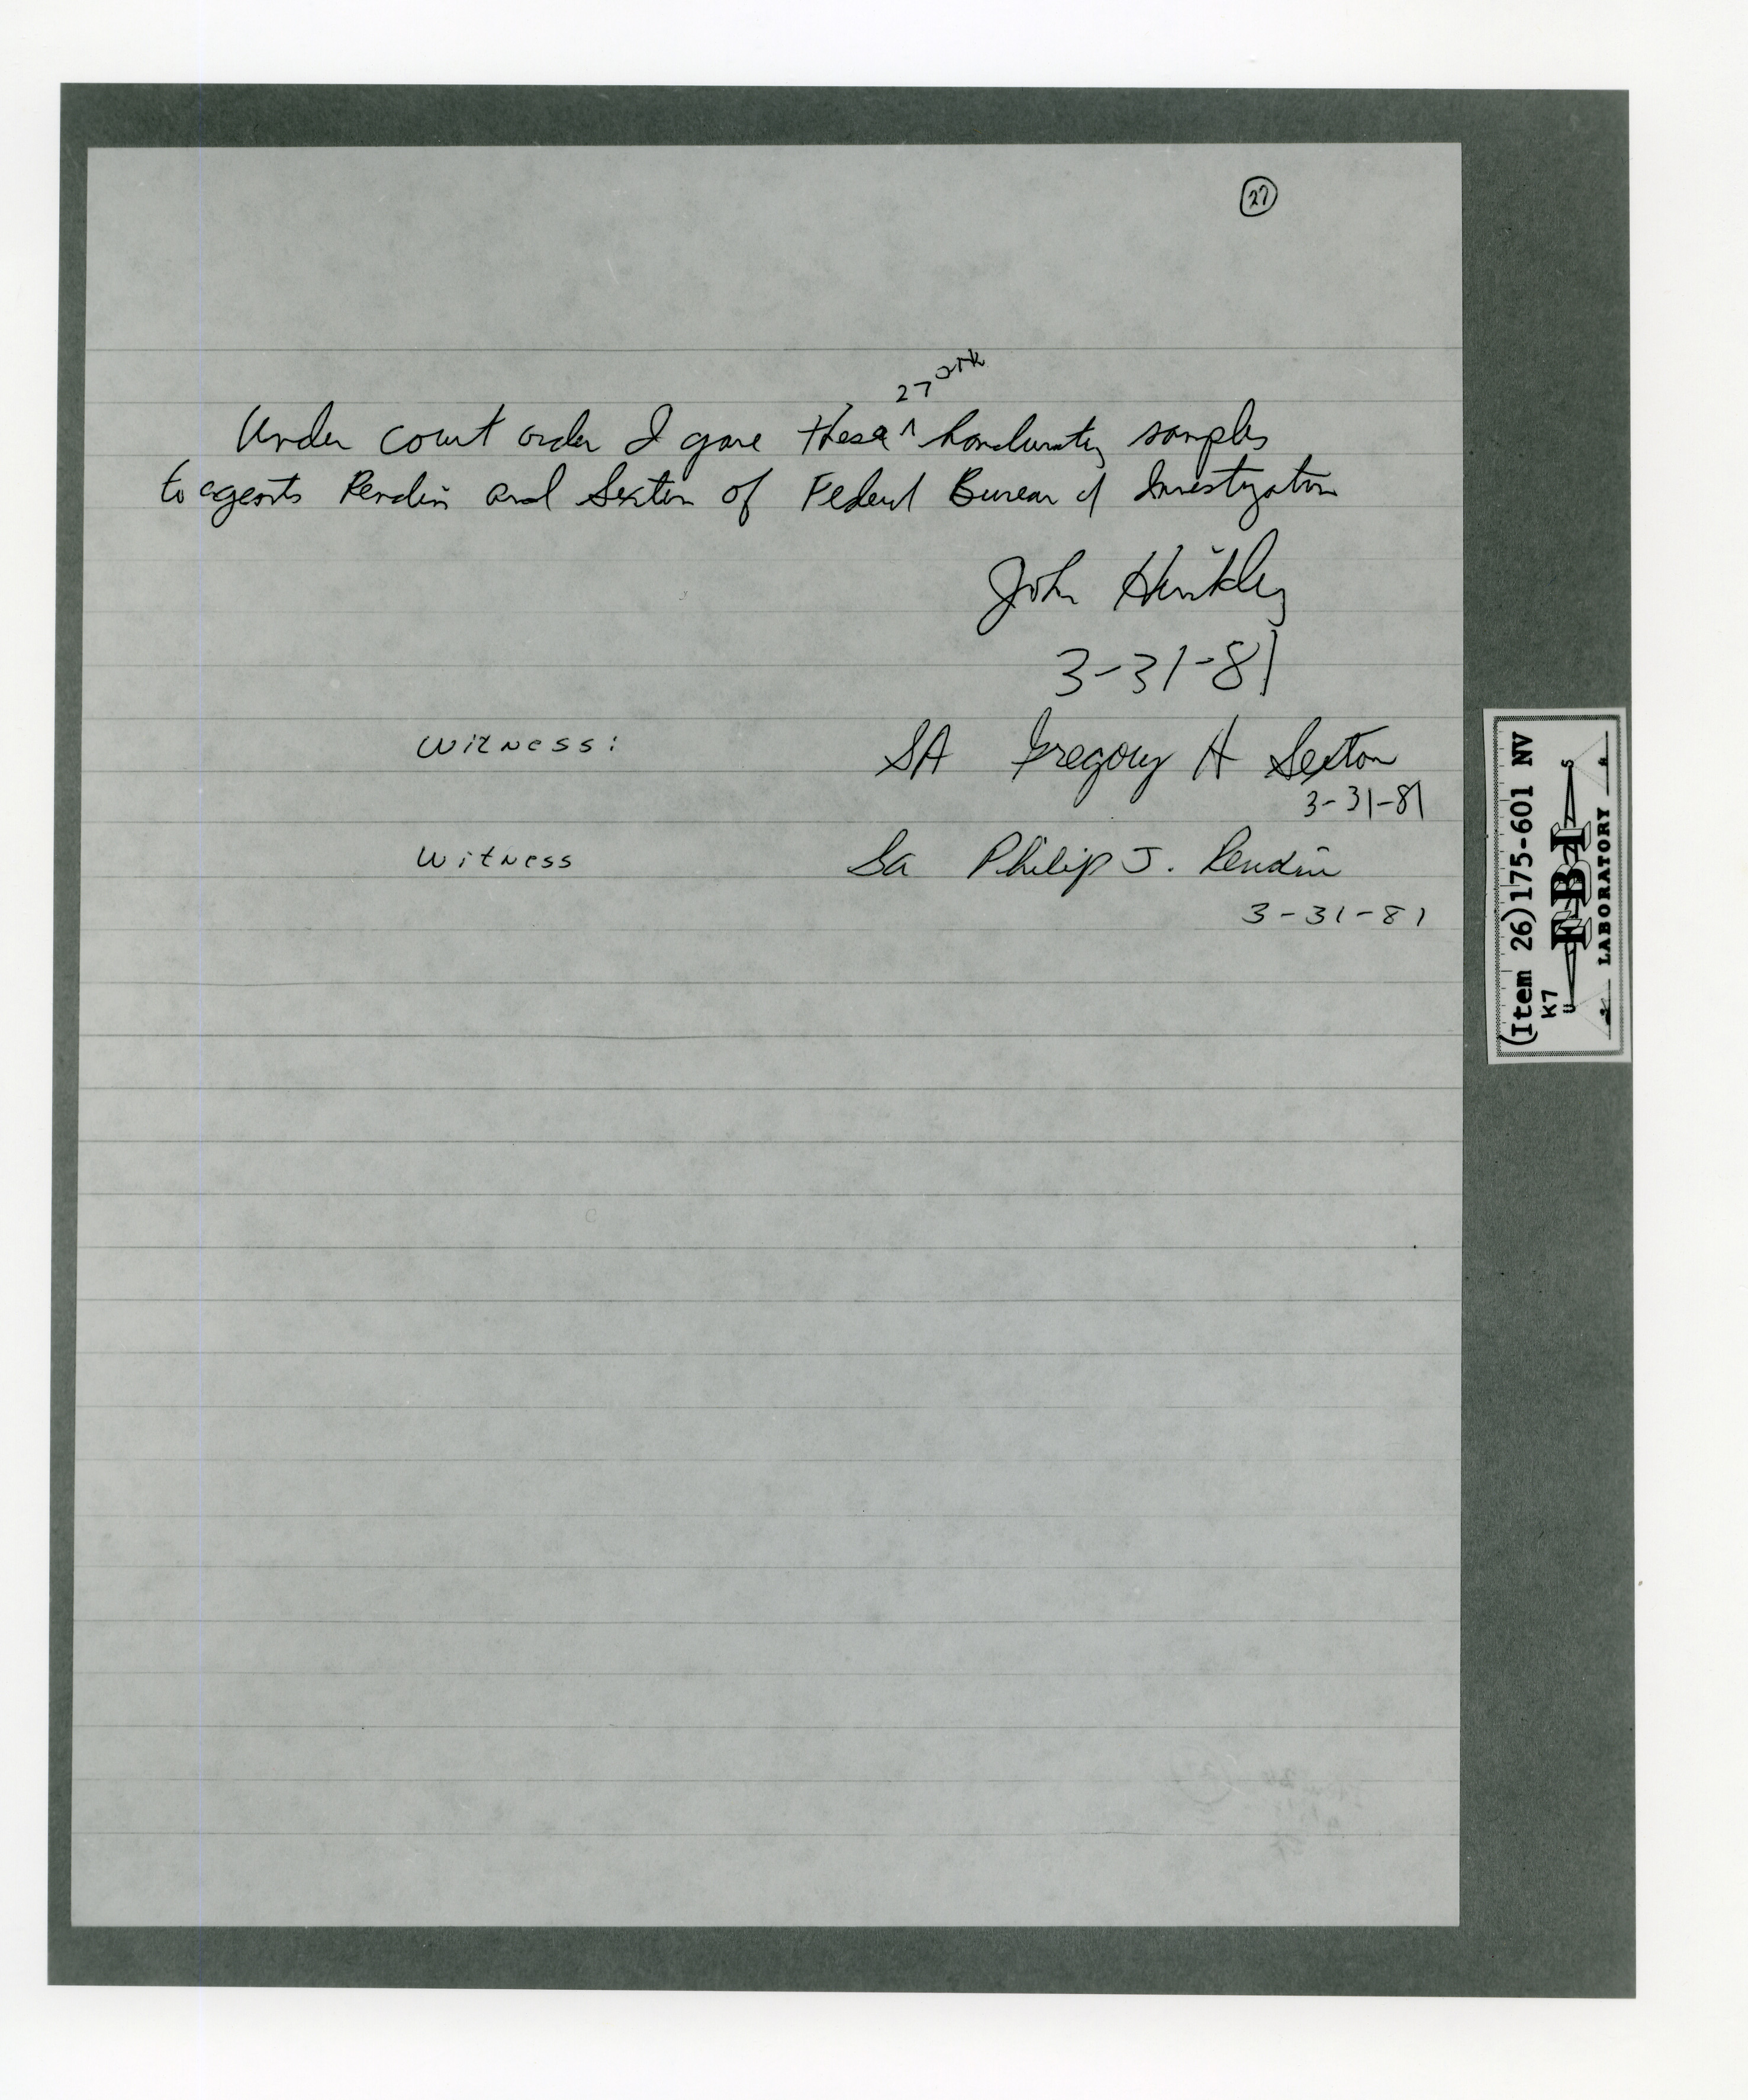 27
27
Under court order I gave these ^ handwriting samples
to agents Rendin and Sexton of Federal Bureau of Investigation
John Hinckley
3-31-81
Witness: SA Gregory H Sexton
3-31-81
Witness Sa Philip J. Rendin
3-31-81
(Item 26)175-601 NV
K7
U S
FBI
LABORATORY